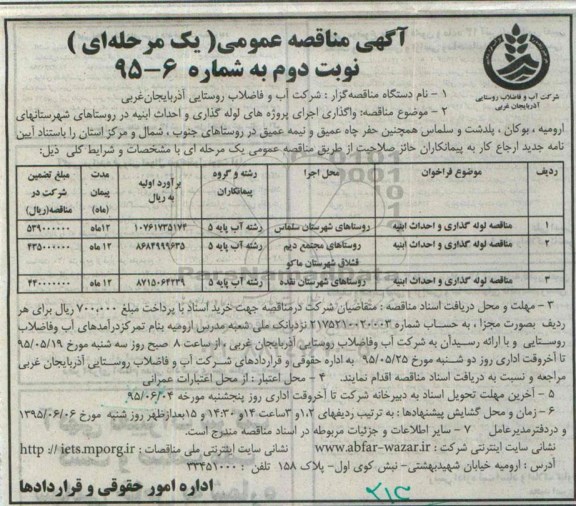 آگهی مناقصه عمومی( یک مرحله‌ای )
نوبت دوم به شماره ۶-۹۵
شرکت آب و فاضلاب روستایی
آذربایجان غربی
۱ - نام دستگاه مناقصه‌گزار : شرکت آب و فاضلاب روستایی آذربایجان‌غربی
۲ - موضوع مناقصه: واگذاری اجرای پروژه های لوله گذاری و احداث ابنیه در روستاهای شهرستانهای
ارومیه ، بوکان ، پلدشت و سلماس همچنین حفر چاه عمیق و نیمه عمیق در روستاهای جنوب ، شمال و مرکز استان را باستناد آیین
نامه جدید ارجاع کار به پیمانکاران حائز صلاحیت از طریق مناقصه عمومی یک مرحله ای با مشخصات و شرایط کلی ذیل:
ردیف موضوع فراخوان محل اجرا رشته و گروه پیمانکاران برآورد اولیه به ریال مدت پیمان (ماه) مبلغ تضمین شرکت در مناقصه(ریال)
۱ مناقصه لوله گذاری و احداث ابنیه روستاهای شهرستان سلماس رشته آب پایه ۵ ۱۰۷۶۱۷۳۵۱۷۲ ۱۲ماه ۵۳۹۰۰۰۰۰۰
۲ مناقصه لوله گذاری و احداث ابنیه روستاهای مجتمع دیم قشلاق شهرستان ماکو رشته آب پایه ۵ ۸۶۸۴۹۹۹۶۳۵ ۱۲ماه ۴۳۵۰۰۰۰۰۰
۳ مناقصه لوله گذاری و احداث ابنیه روستاهای شهرستان نقده رشته آب پایه ۵ ۸۷۱۵۰۶۴۲۳۹ ۱۲ ماه ۴۴۰۰۰۰۰۰۰
۳ - مهلت و محل دریافت اسناد مناقصه : متقاضیان شرکت درمناقصه جهت خرید اسناد با پرداخت مبلغ ۷۰۰,۰۰۰ ریال برای هر
ردیف بصورت مجزا ، به حساب شماره ۲۱۷۵۲۱۰۰۲۰۰۳ نزدبانک ملی شعبه مدرس ارومیه بنام تمرکزدرآمدهای آب وفاضلاب
روستایی و با ارائه رسیدآن به شرکت آب وفاضلاب روستایی آذربایجان غربی ، از ساعت ۸ صبح روز سه شنبه مورخ ۹۵/۰۵/۱۹
تا آخروقت اداری روز دو شنبه مورخ ۹۵/۰۵/۲۵ به اداره حقوقی و قراردادهای شرکت آب و فاضلاب روستایی آذربایجان غربی
مراجعه و نسبت به دریافت اسناد مناقصه اقدام نمایند. ۴ - محل اعتبار : از محل اعتبارات عمرانی
۵ - آخرین مهلت تحویل اسناد به دبیرخانه شرکت تا آخروقت اداری روز پنجشنبه مورخه ۹۵/۰۶/۰۴.
۶ - زمان و محل گشایش پیشنهادها : به ترتیب ردیفهای ۱،۲و ۳ساعت ۱۴و ۱۴:۳۰ و ۱۵بعدازظهر روز شنبه مورخ ۱۳۹۵/۰۶/۰۶
و دردفترمدیرعامل ۷ - سایر اطلاعات و جزئیات مربوطه در اسناد مناقصه مندرج است.
نشانی سایت اینترنتی شرکت : www.abfar-wazar.ir نشانی سایت اینترنتی ملی مناقصات : http // iets.mporg.ir
آدرس : ارومیه خیابان شهیدبهشتی- نبش کوی اول- پلاک ۱۵۸ تلفن : ۳۳۴۵۱۰۰۰
اداره امور حقوقی و قراردادها
۲۱۲